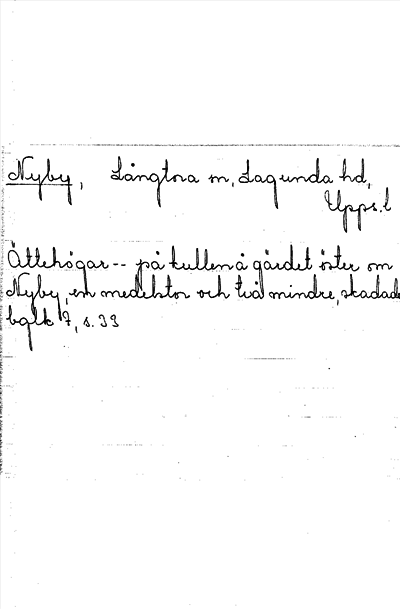 Nyby, Långtora sn, Lagunda hd,
Upps.l
Ättehögar -- på kullen å gärdet öster om
Nyby, en medelstor och två mindre, skadade
bglk 7, s. 33